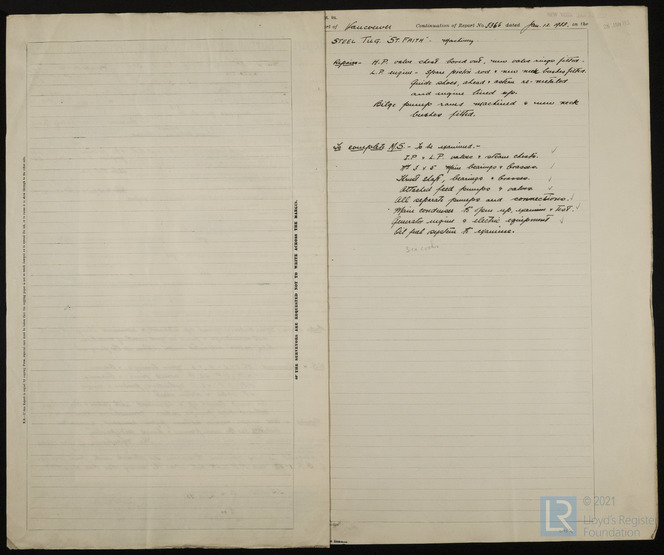 OF THE SURVEYORS ARE REQUESTED NOT TO WRITE ACROSS THE MARGIN.
Vancouver Continuation of Report No. 3366 dated Jan. 12. 1933. on the
STEEL TUG ST. FAITH - Machinery.
Repairs - H.P. valve chest bored out, new valve rings fitted.
L.P. engine - Spare piston rod & new neck bushes fitted.
Guide shoes, ahead & astern re-metalled
and engine lined up.
Bilge pump rams machined & new neck
bushes fitted.
To complete M.S. - To be examined -
I.P & L.P. valves & steam chests.
Nos 3 & 5 Main bearings & brasses.
Thrust shaft, bearings & brasses.
Attached feed pumps & valves
All separate pumps and connections.
Main condenser to open up, examine & test.
Generator engine & electric equipment
Oil fuel system to examine.
© 2021
LR
Lloyd's Register
Foundation